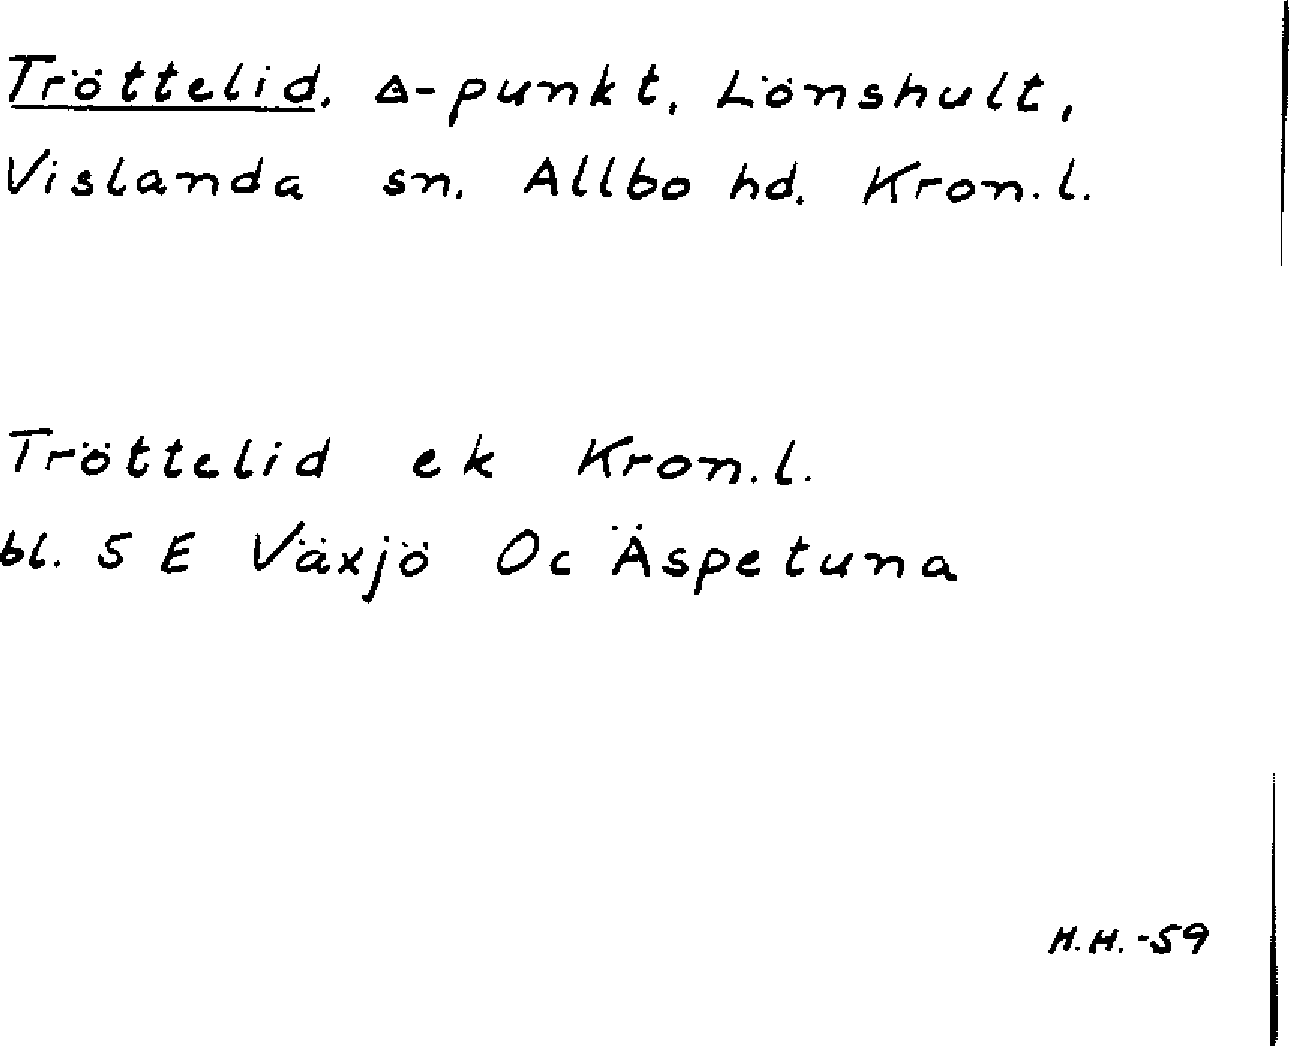 Tröttelid. Δ-punkt, Lönshult,
Vislanda sn. Allbo hd. Kron.l.
Tröttelid ek Kron.l.
bl. 5 E Växjö Oc Äspetuna
H.H.-59